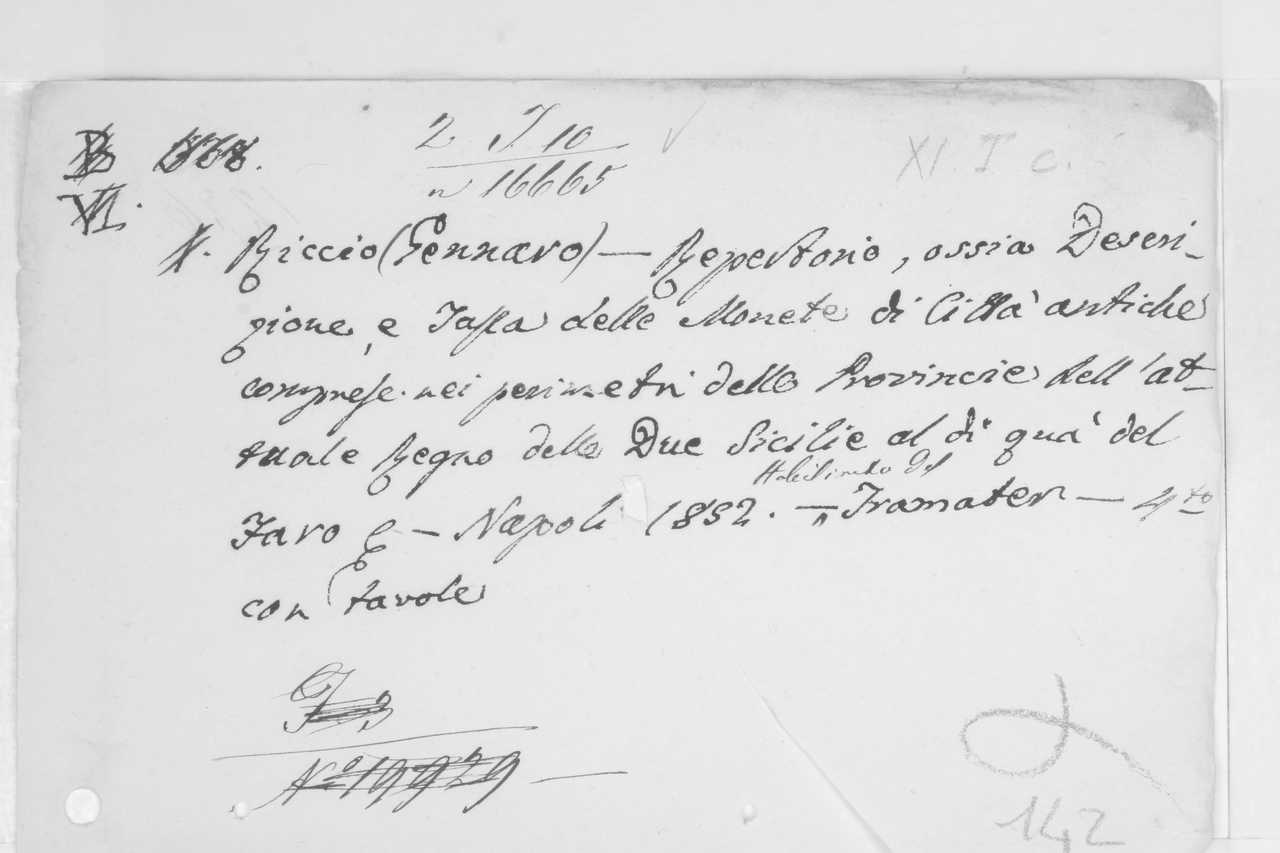 2 J 10
n 16665
XI. I c.
VI.
Riccio (Gennaro) — Repertorio, ossia Descri-
zione, e Tassa delle Monete di Città antiche
comprese nei perimetri delle Provincie dell'at-
tuale Regno delle Due Sicilie al di quà del
Faro & — Napoli 1852. — Stabilimento del Tramater — 4to
con tavole
No 19929 —
142